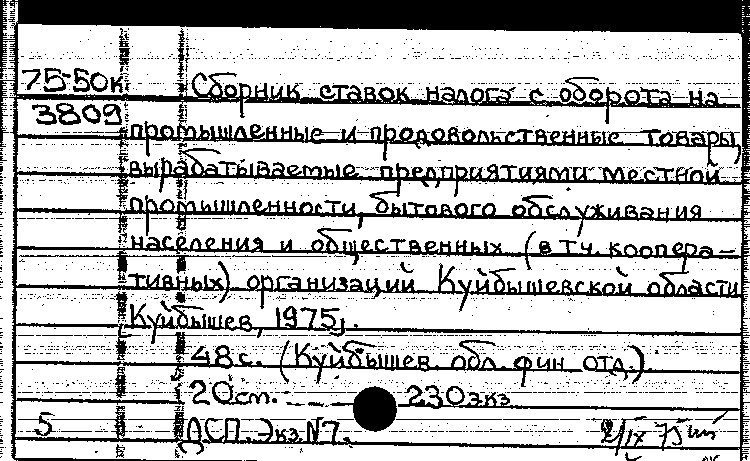 75-50к Сборник ставок налога с оборота на
3809
промышленные и продовольственные товары,
вырабатываемые предприятиями местной
промышленности, бытового обслуживания
населения и общественных (в т.ч. коопера-
тивных) организаций Куйбышевской области
Куйбышев, 1975г.
48с. (Куйбышев. обл. фин. отд.).
20см. 230экз
5 ДСП. Экз. N7. 2/IX 75